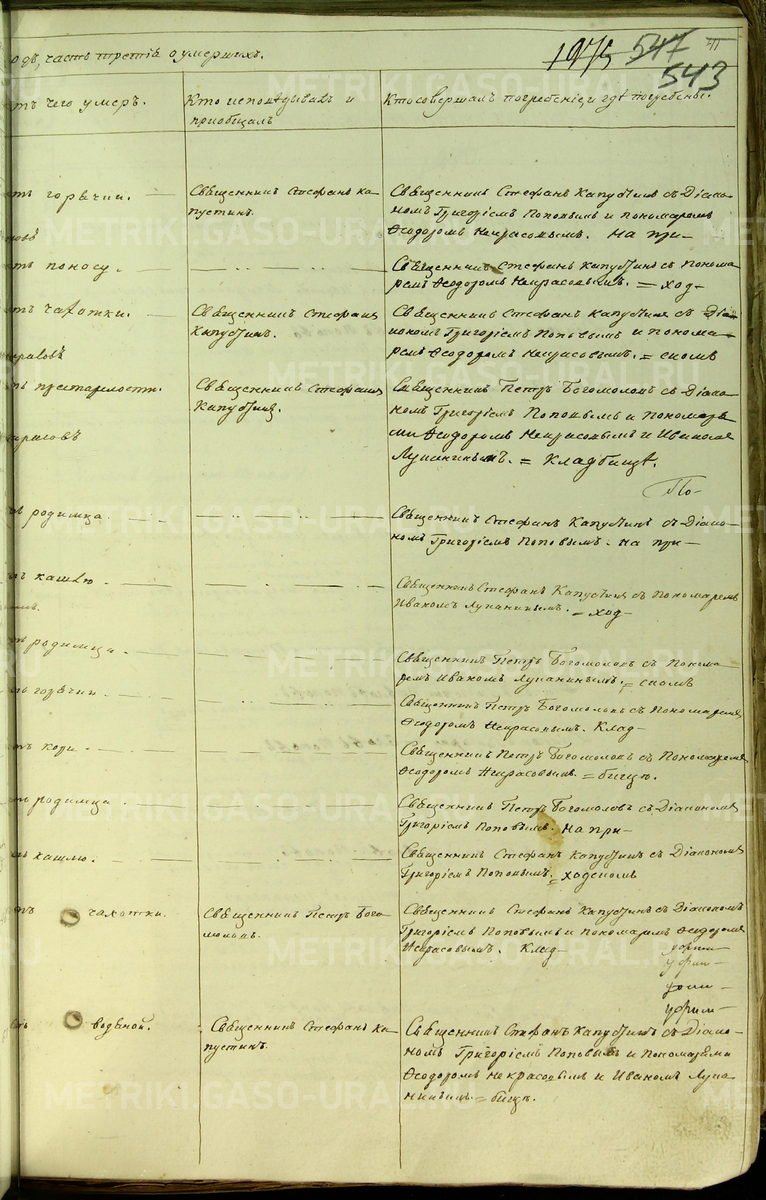 одѣ, часть третія о умершихъ.
1975 547
543
отъ чего умеръ. Кто исповѣдывалъ и Кто совершалъ погребеніе, и гдѣ погребены.
приобщалъ
отъ горячки. Священникъ Стефанъ Ка- Священникъ Стефанъ Капустинъ съ Діако-
пустинъ. номъ Григоріемъ Поповымъ и пономаремъ
Ѳеодоромъ Некрасовымъ. На при-
отъ поносу. Священникъ Стефанъ Капустинъ съ Понома-
ремъ Ѳеодоромъ Некрасовымъ. = ход-
отъ чахотки. Священникъ Стефанъ Священникъ Стефанъ Капустинъ съ Діа-
Капустинъ. кономъ Григоріемъ Поповымъ и понома-
ремъ Ѳеодоромъ Некрасовымъ. = скомъ
отъ престарелости. Священникъ Стефанъ Священникъ Петръ Богомоловъ съ Діако-
Капустинъ. номъ Григоріемъ Поповымъ и Пономаря-
ми Ѳеодоромъ Некрасовымъ и Иваномъ
Лупанинымъ. = Кладбищѣ.
По-
родимца. Священникъ Стефанъ Капустинъ съ Діако-
номъ Григоріемъ Поповымъ. На при-
кашлю. Священникъ Стефанъ Капустинъ съ Пономаремъ
Иваномъ Лупанинымъ. = ход-
родимца. Священникъ Петръ Богомоловъ съ Понома-
ремъ Иваномъ Лупанинымъ. = скомъ
горячки. Священникъ Петръ Богомоловъ съ Пономаремъ
Ѳеодоромъ Некрасовымъ. Клад-
отъ кори. Священникъ Петръ Богомоловъ съ Пономаремъ
Ѳеодоромъ Некрасовымъ. = бищѣ.
родимца. Священникъ Петръ Богомоловъ съ Діакономъ
Григоріемъ Поповымъ. На при-
кашлю. Священникъ Стефанъ Капустинъ съ Діакономъ
Григоріемъ Поповымъ. = ходскомъ
отъ чахотки. Священникъ Петръ Бого- Священникъ Стефанъ Капустинъ съ Діакономъ
моловъ. Григоріемъ Поповымъ и пономаремъ Ѳеодоромъ
Некрасовымъ. Клад-
отъ водяной. Священникъ Стефанъ Ка- Священникъ Стефанъ Капустинъ съ Діако-
пустинъ. номъ Григоріемъ Поповымъ и Пономарями
Ѳеодоромъ Некрасовымъ и Иваномъ Лупа-
нинымъ = бищѣ.
METRIKI.GASO-URAL.RU